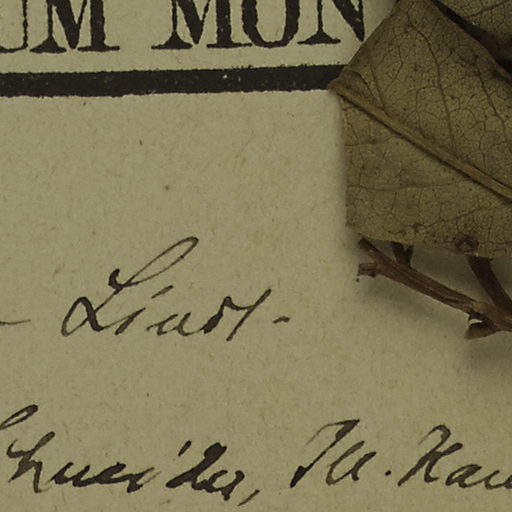 UM MON
Lindl.
Schneider, Ill. Han